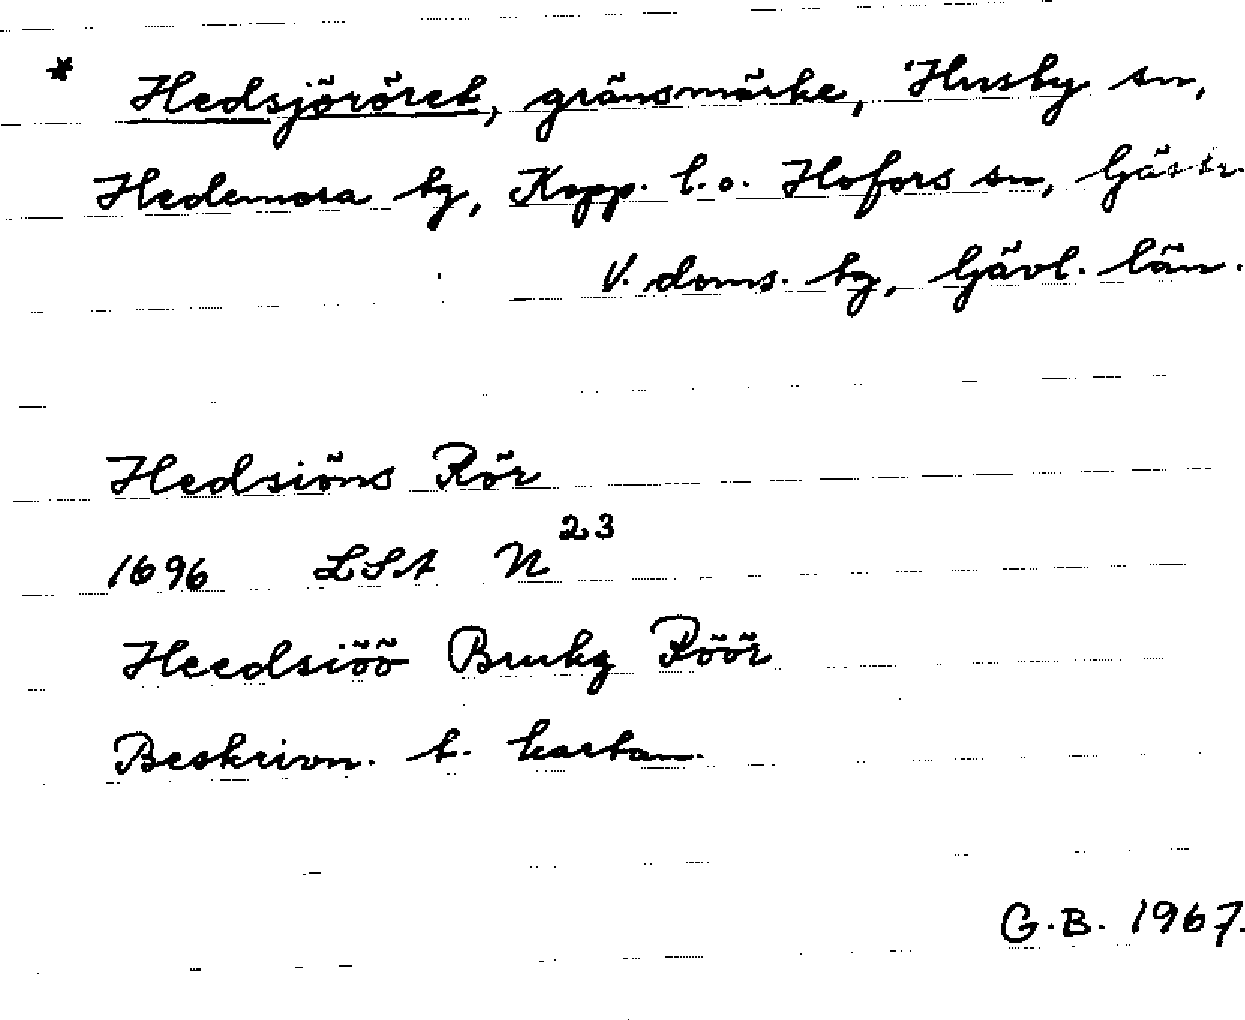 * Hedsjöröret, gränsmärke, Husby sn,
Hedemora tg, Kopp. l. o. Hofors sn, Gästr.
V. doms. tg, Gävl. län.
Hedsiöns Rör
1696 LSA N 23
Heedsiöö Brukz Röör
Beskrivn. t. kartan.
G.B. 1967.